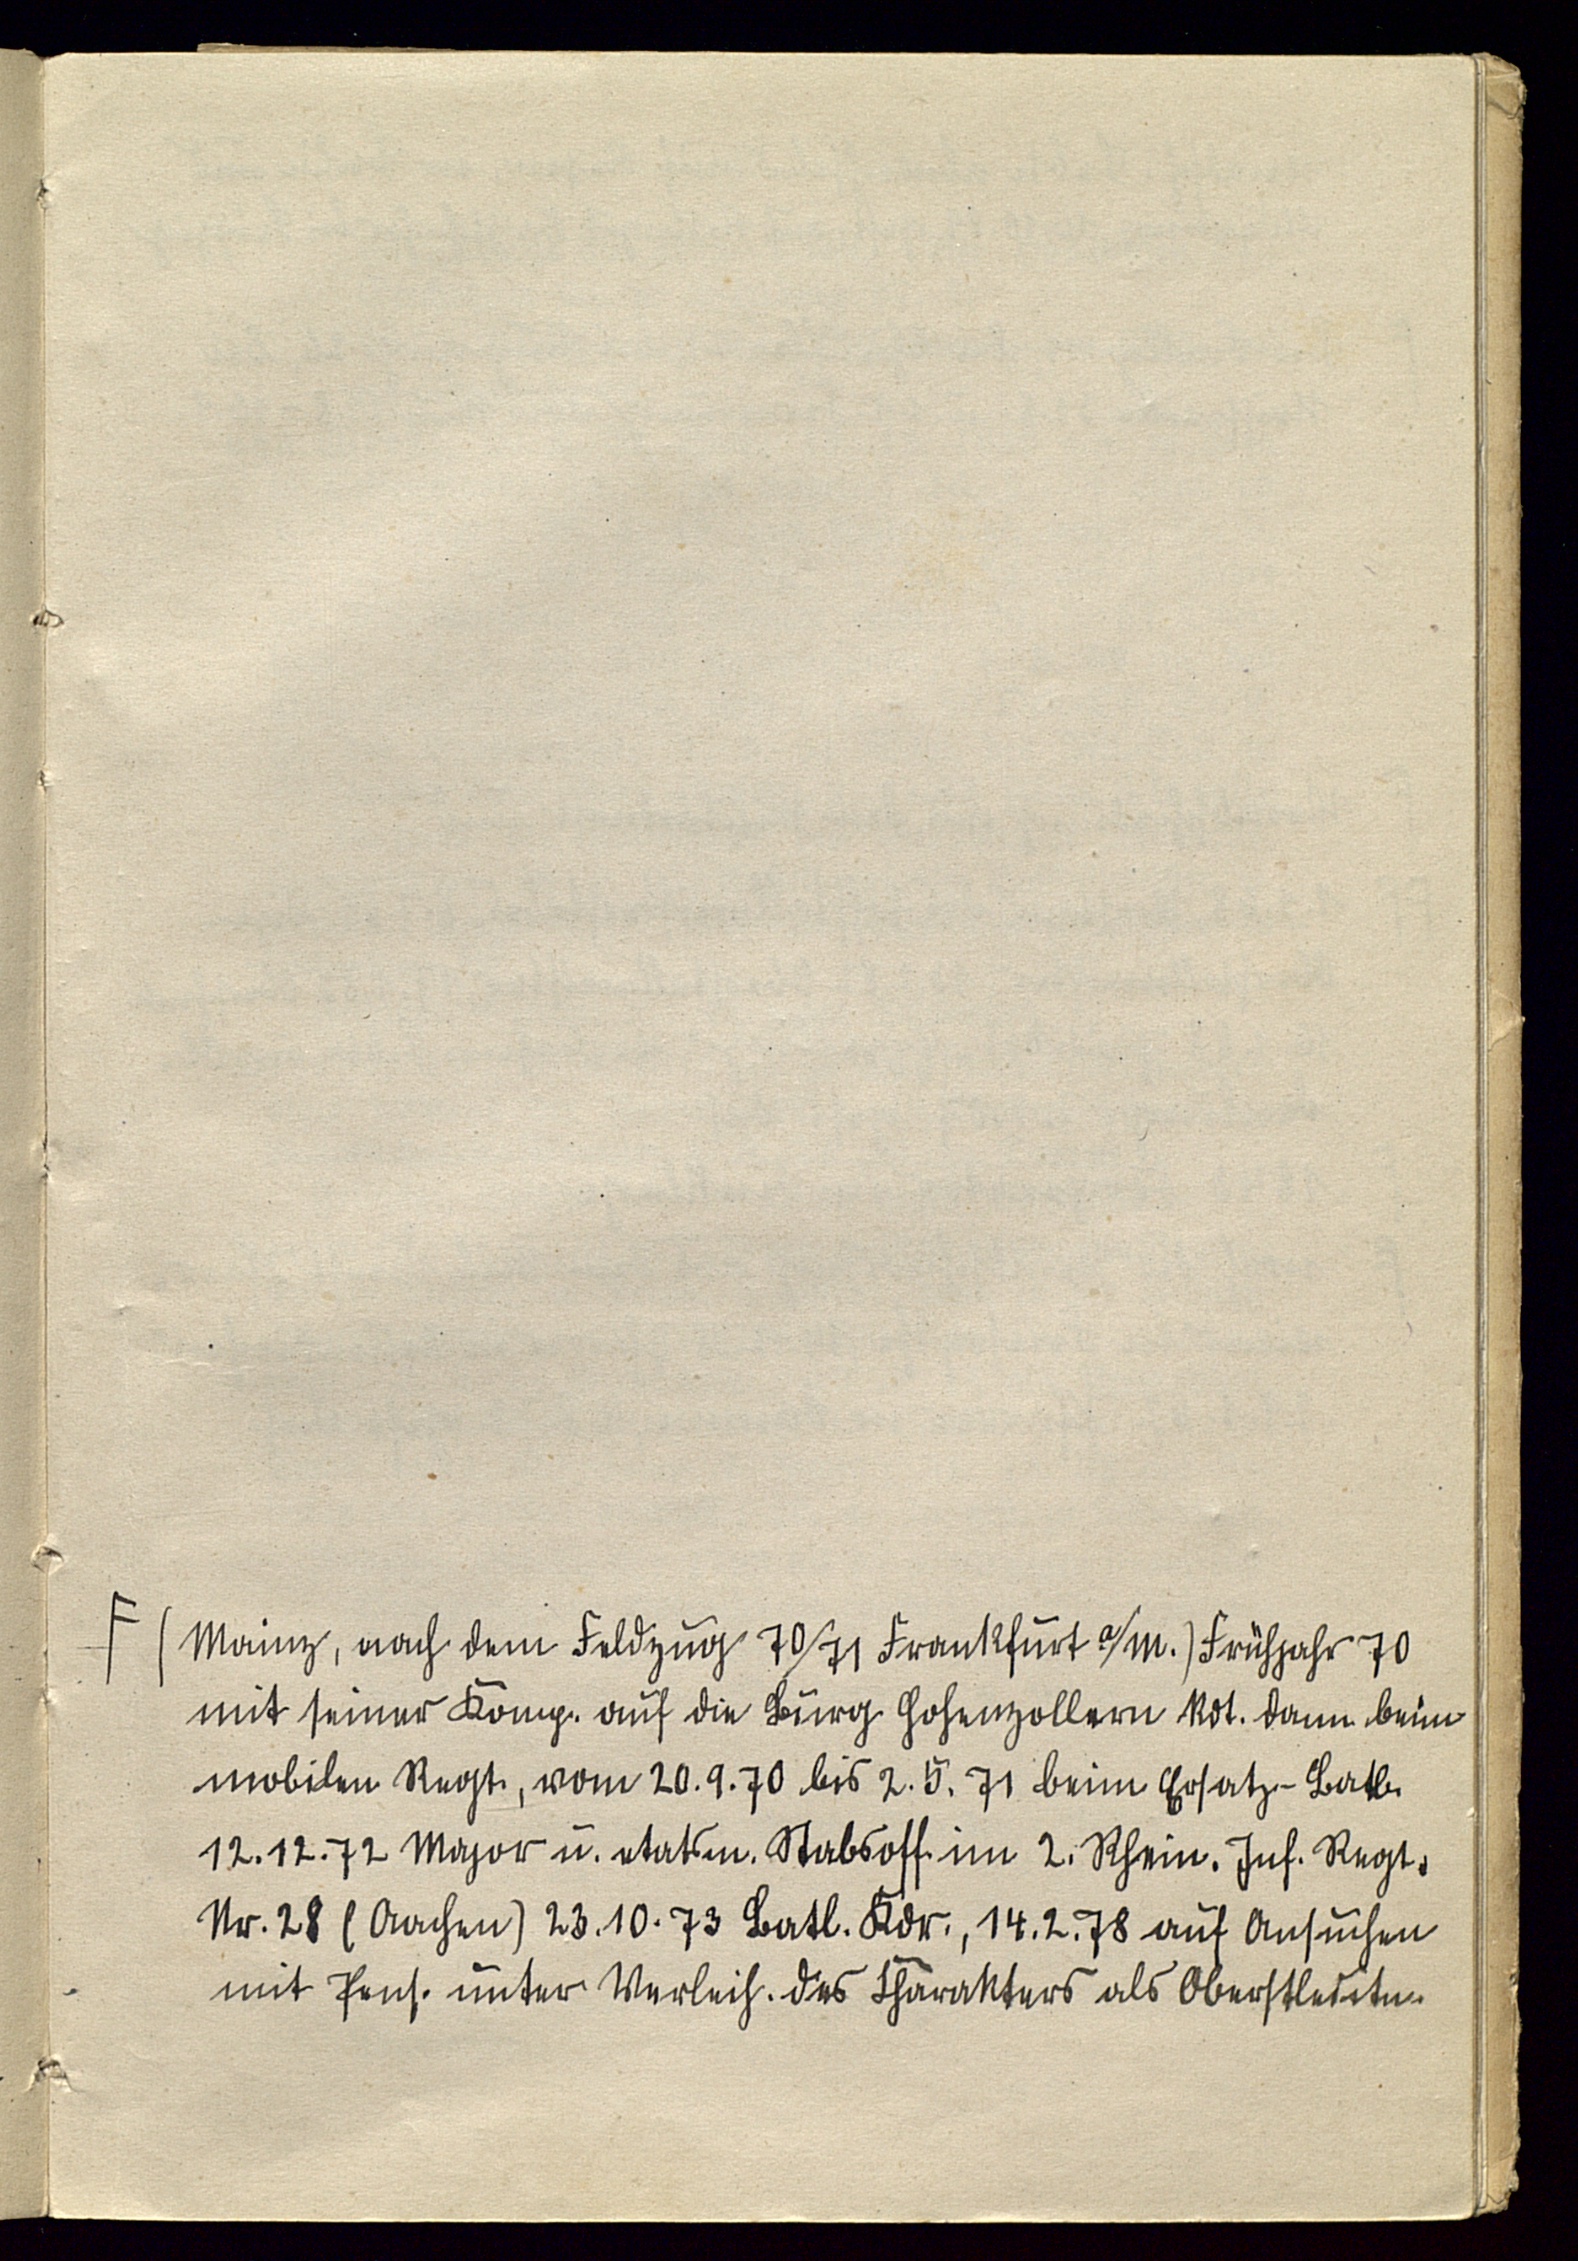 F (Mainz, nach dem Feldzug 70/71 Frankfurt a/M.) Frühjahr 70
mit seiner Komp. auf die Burg Hohenzollern kdt. dann beim
mobilen Regt., vom 20.9.70 bis 2.5.71 beim Ersatz-Batl.
12.12.72 Major u. etatsm. Stabsoff. im 2. Rhein. Inf. Regt.
Nr. 28 (Aachen) 23.10.73 Batl. Kdr., 14.2.78 auf Ansuchen
mit Pens. unter Verleih. des Charakters als Oberstleutn.